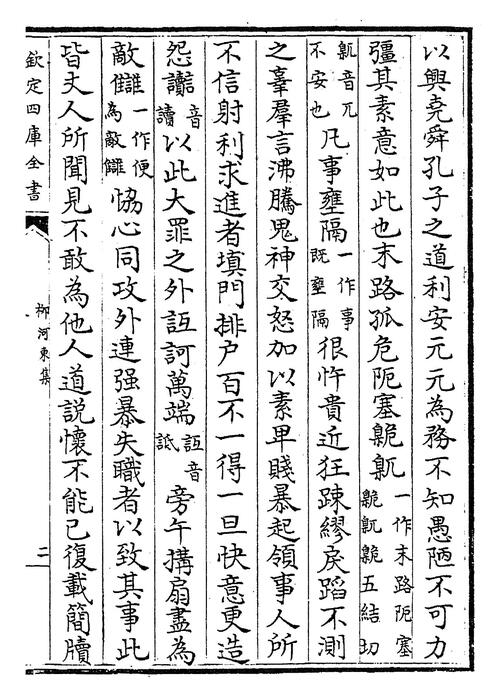 以興堯舜孔子之道利安元元為務不知愚陋不可力
彊其素意如此也末路孤危阨塞臲卼一作末路阨塞臲卼臲五結切
卼音兀不安也凡事壅隔一作事既壅隔很忤貴近狂踈繆戾蹈不測
之辜羣言沸騰鬼神交怒加以素卑賤暴起領事人所
不信射利求進者填門排户百不一得一旦快意更造
怨讟音讀以此大罪之外詆訶萬端詆音詆旁午搆扇盡為
敵讎一作便為敵讎恊心同攻外連强暴失職者以致其事此
皆丈人所聞見不敢為他人道說懷不能已復載簡牘
欽定四庫全書
柳河東集
二